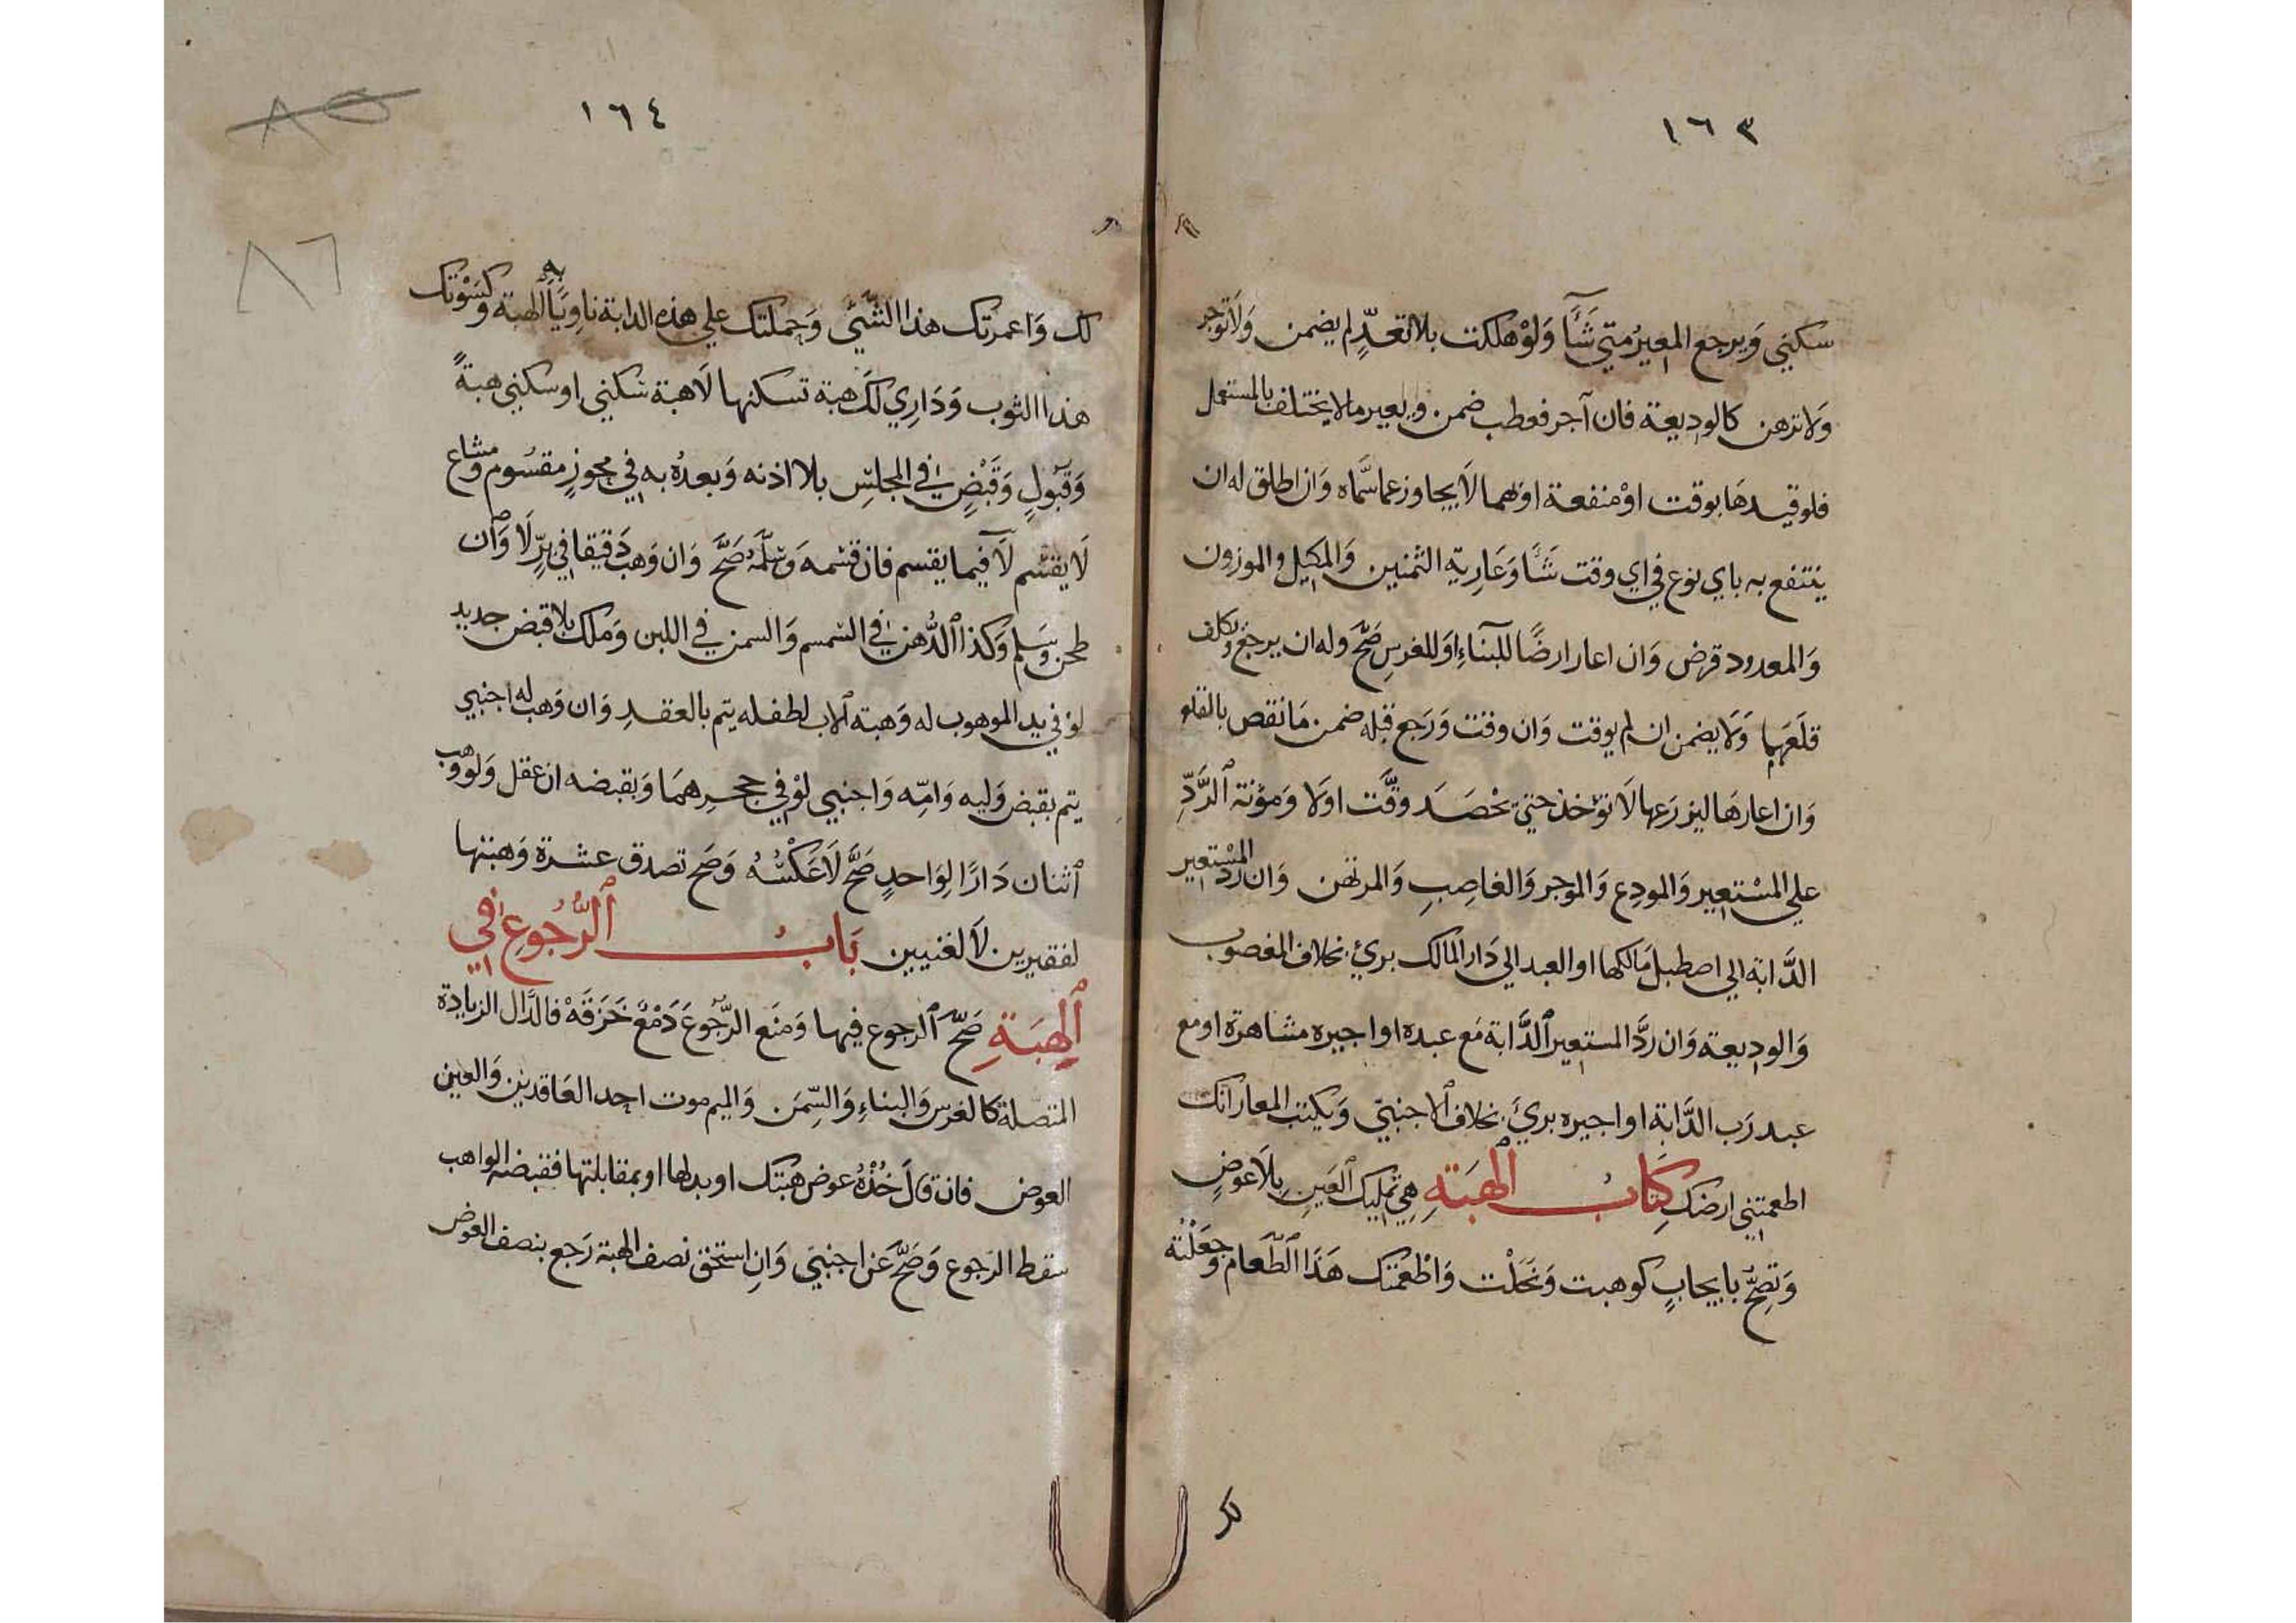 ١٦٣
سكني وَيرجع المعيرُ متي شَآَ وَلَوْ هلكت بلا تعدٍّ لم يضمن وَلَا توجر
وَلا ترهن كالوديعة فان آجر فعطب ضمن ويعير مالا يختلف بالمستعمل
فلو قيدهَا بوقت اوْ منفعة اوبهما لَا يجاوز عما سَّماه وَان اطلق له ان
ينتفع به باي نوع في اي وقت شَآَ وَعَارية الثمنين وَالمكيل والموزون
وَالمعدود قرض وَان اعار ارضًا للبنآءِ اَو للغرسِ صَحَّ وله ان يرجعَ وَيكلف
قلَعَهما وَلَا يضمن ان لم يوقت وَان وقت وَرَجع قبله ضمن مَا نقص بالقلع
وَان اعارهَا ليزرَعها لَا تؤخذ حتيّ تحْصَدَ وقَّت اولَا وَمؤنة ٱلرَّدِّ
علي المسْتعير وَالمودِع وَالموجر وَالغاصِبِ وَالمرتهن وَان رَدّ المسْتعير
الدَّابة الي اصطبل مَالكها او العبد الي دَار المَالك برئَ بخلاف المغصوب
وَالوديعة وَان ردَّ المستعير ٱلدَّابة مَع عبده او اجيره مشاهرة او مع
عبد رَب الدَّابة او اجيره برئَ بخلاف ٱلاجنبيّ وَيكتب المعار انك
اطعمتني ارضك كِتَابُ ٱلهِبَةِ هِي تمليك ٱلعَينِ بِلَا عوَضٍ
وَتصِحُّ بايجابٍ كوهبت وَنَحَلْت وَاطْعَمْتك هَذا ٱلطَّعَام وَجَعَلْتُه
لك
١٦٤
٨٥
٨٦
لك وَاعمرتك هذا الشَّئَ وَحملتك علي هذه الدابة ناوِيَا به ٱلهبة وَكسَوْتك
هذا الثوب وَدَارِي لكَ هبة تسكنها لَا هبة سكني او سكني هبةً
وَقبُولٍ وَقَبْضٍ في المجلسِ بلا اذنه وَبعدهُ به في محوزٍ مقسُوم وَمشاعٍ
لَا يقسَّم لَا فيما يقسم فان قسمه وَسَلَّمَهُ صَحَّ وَان وَهب دَقيقا في برٍّ لَا وَاْن
طحن وَسَلم وَكذا ٱلدُّهن في السمسم وَالسمن في اللبن وَملك بلا قبض جديد
لوْ في يد الموهوب له وَهبة ٱلاب لطفله يتم بالعقدِ وَان وَهب له اجنبي
يتم بقبض وَليه وَامِّه وَاجنبي لوْ في حجرهمَا وَبقبضه ان عقل وَلو وَهب
ٱثنان دَارًا لِوَاحدٍ صَحَّ لَا عَكْسُهُ وَصَح تصدق عشرة وَهبتها
لفقيرين لَا لغنيين بَابُ ٱلرُّجُوعِ فِي
ٱلهِبَةِ صَحَّ ٱلرجوع فيها وَمَنَع الرُّجُوعَ دَمْعٌ خَزَقَهْ فالدَّال الزيادة
المتصلة كالغرس وَالبناءِ وَالسِّمَن وَالميم موت احد العَاقدين وَالعين
العوض فان قَالَ خُذْهُ عوض هبَتك او بدلها او بمقابلتها فقبضه الواهب
سَقط الرّجوع وَصَحَّ عَن اجنبيّ وَاِن استحق نصف الهبة رَجع بنصف العوض